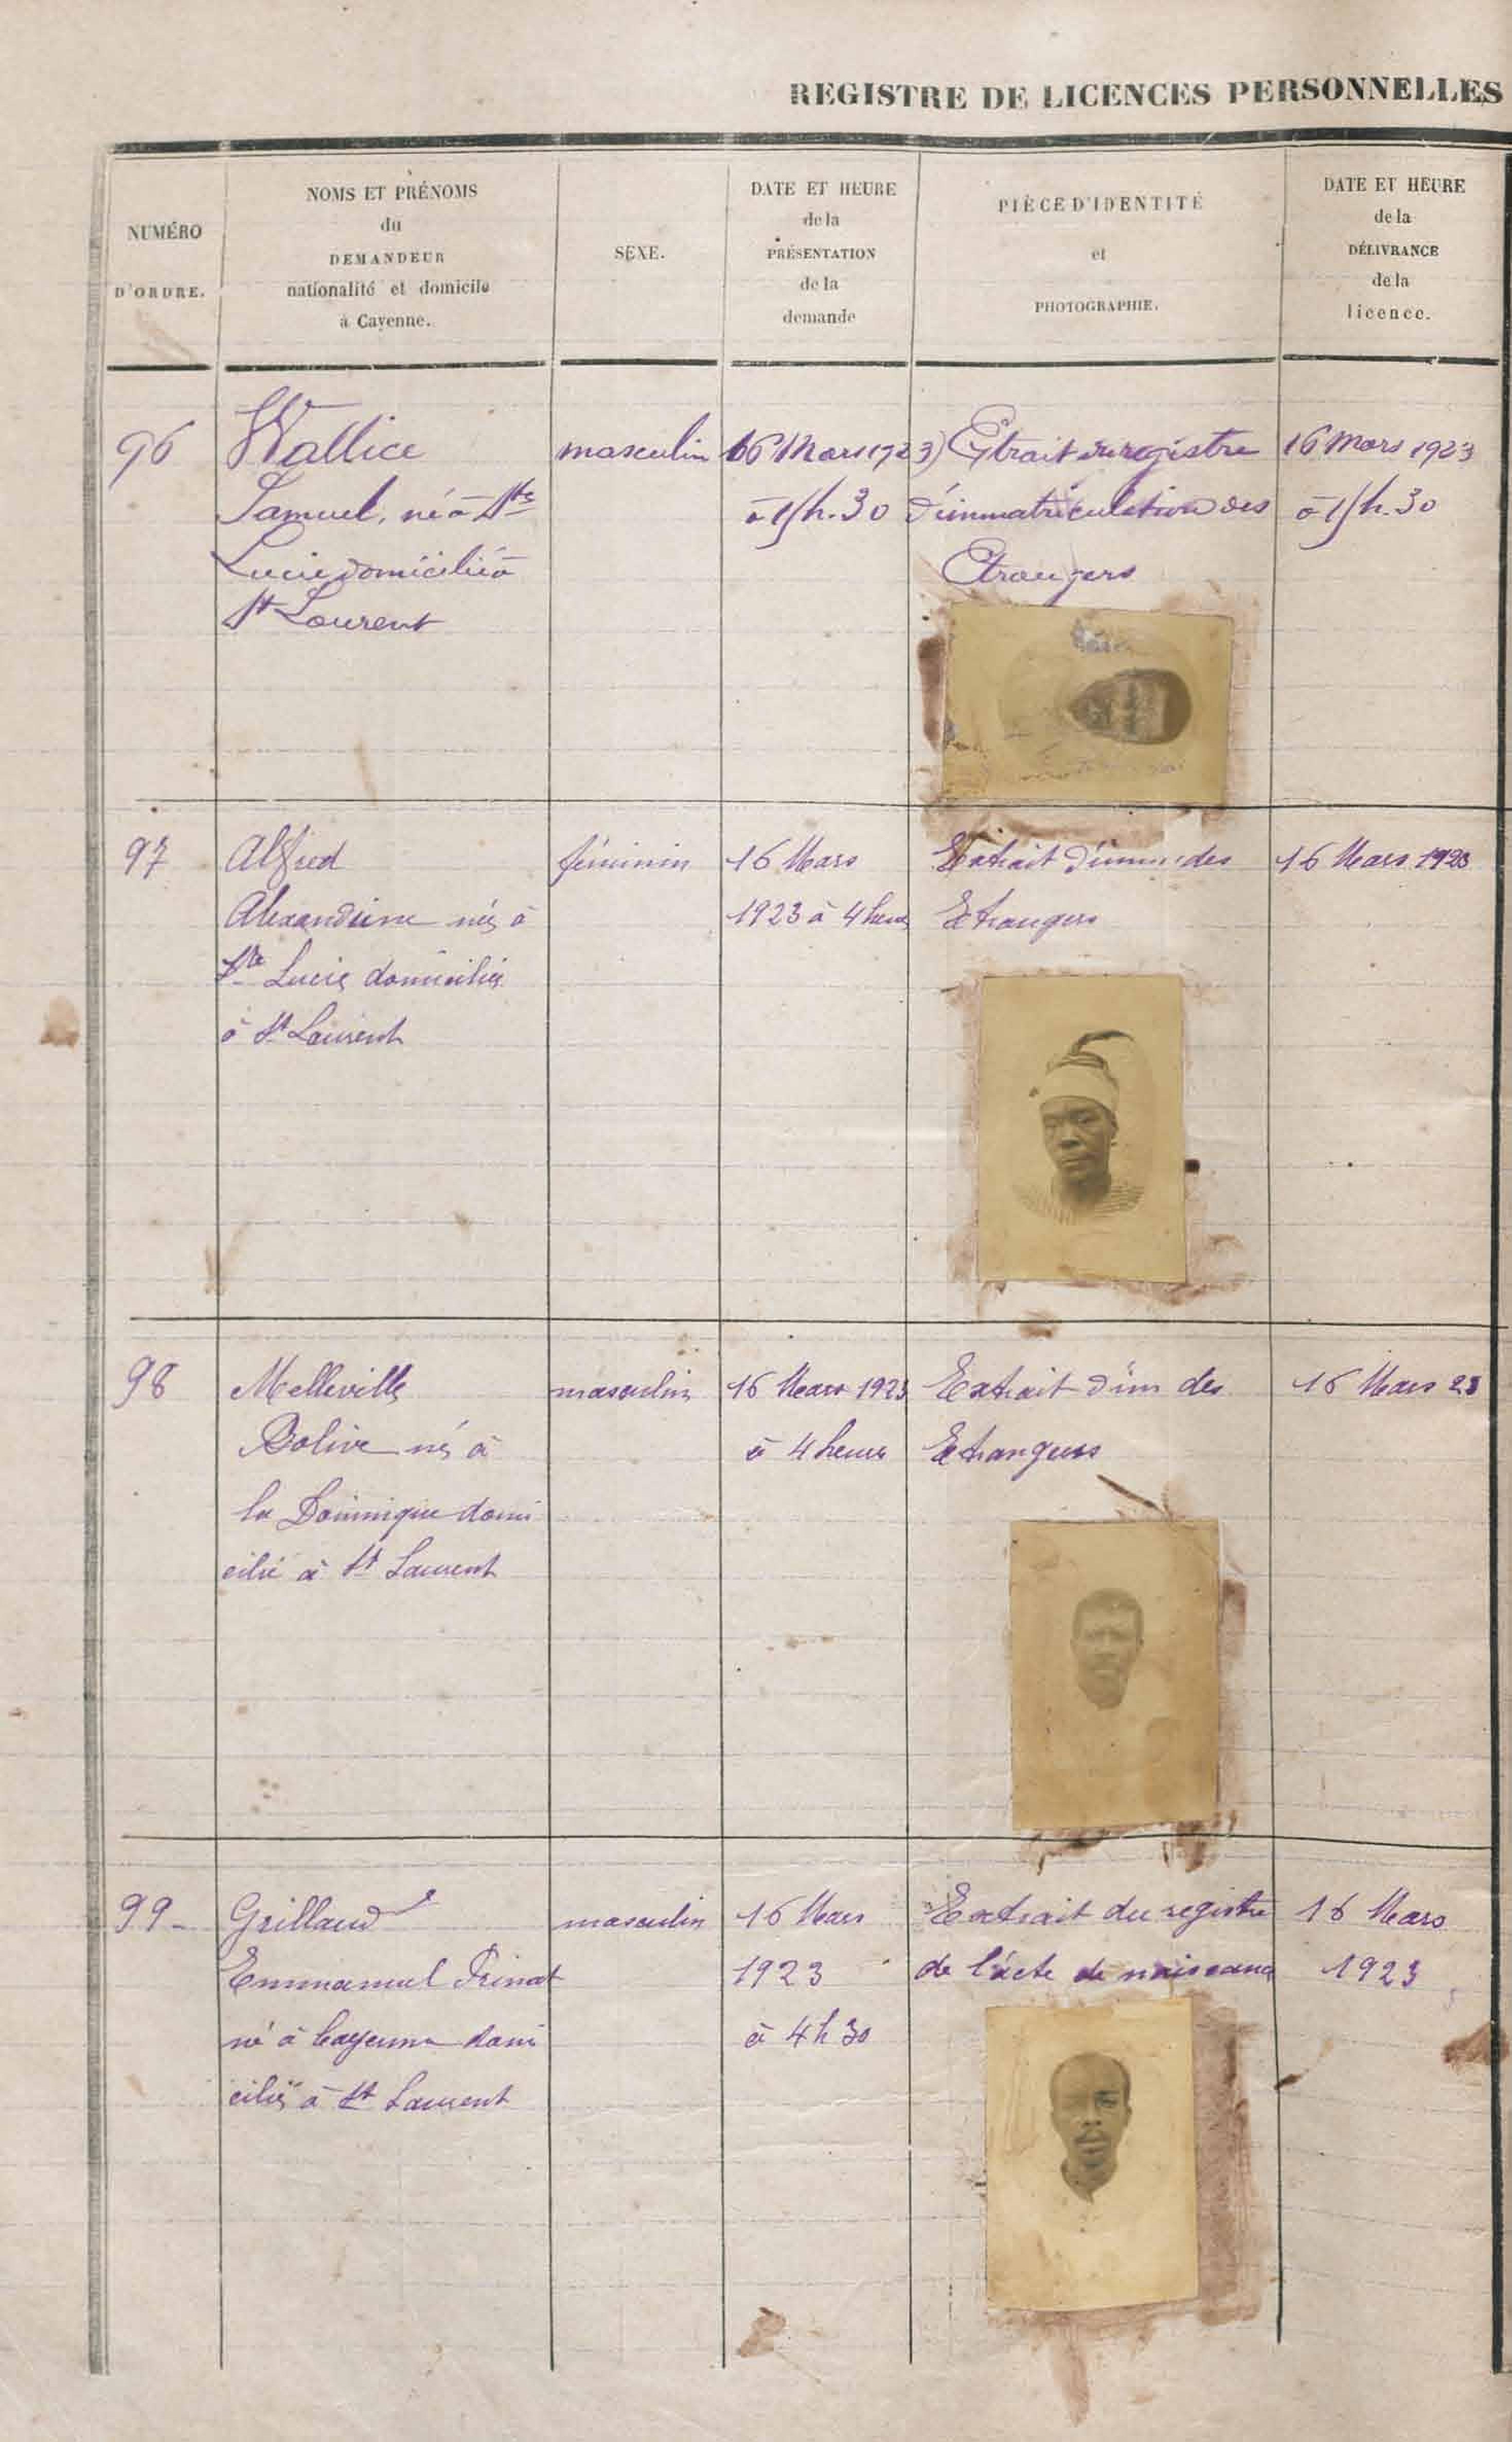 REGISTRE DE LICENCES PERSONNELLES
NUMÉRO
D'ORDRE.
NOMS ET PRÉNOMS
du
DEMANDEUR
nationalité et domicile
à Cayenne.
SEXE.
DATE ET HEURE
de la
PRÉSENTATION
de la
demande
PIÈCE D'IDENTITÉ
et
PHOTOGRAPHIE.
DATE ET HEURE
de la
DÉLIVRANCE
de la
licence.
96
Wallice
Samuel, né à Ste
Lucie domicilié à
St Laurent
masculin
16 Mars 1923
h. 30
Etrait du registre
d'immatriculation des
Etrangers
16 Mars 1923
h. 30
97
Alfred
Alexandrine née à
Ste Lucie domiciliée
à St Laurent
féminin
16 Mars
1923 à 4 heures
Extrait d'imm. des
Etrangers
16 Mars 1923
98
Melleville
Bolive né à
la Dominique domi
cilié à St Laurent
masculin
16 Mars 1923
à 4 heures
Extrait d'im des
Etrangers
16 Mars 23
99-
Grillaud
Emmanuel
né à Cayenne domi
cilié à St Laurent
masculin
16 Mars
1923
à 4 h 30
Extrait du registre
de l'acte de naissance
16 Mars
1923